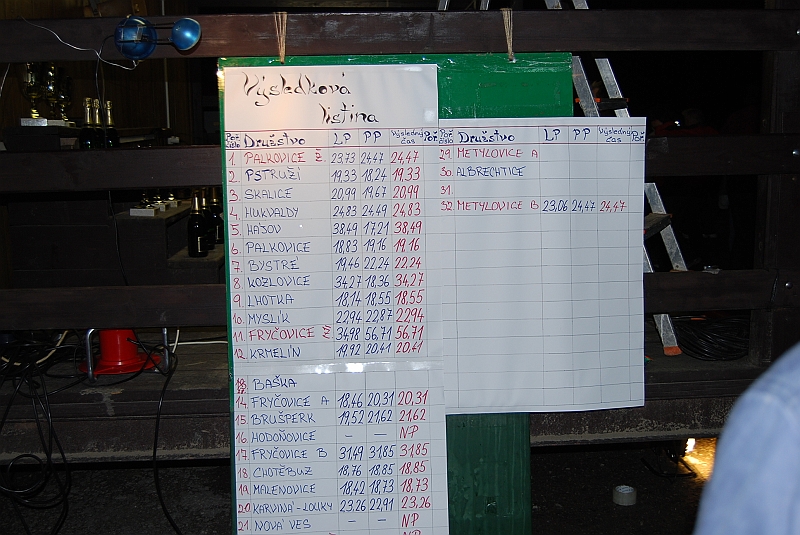 Výsledková
listina
Poř. číslo Družstvo LP PP Výsledný čas Poř.
1. PALKOVICE Ž. 23,73 24,47 24,47
2. PSTRUŽÍ 19,33 18,24 19,33
3. SKALICE 20,99 19,67 20,99
4. HUKVALDY 24,83 24,49 24,83
5. HÁJOV 38,49 17,21 38,49
6. PALKOVICE 18,83 19,16 19,16
7. BYSTRÉ 19,46 22,24 22,24
8. KOZLOVICE 34,27 18,36 34,27
9. LHOTKA 18,14 18,55 18,55
10. MYSLÍK 22,94 22,87 22,94
11. FRYČOVICE Ž. 34,98 56,71 56,71
12. KRMELÍN 19,92 20,41 20,41
BAŠKA
14. FRYČOVICE A 18,46 20,31 20,31
15. BRUŠPERK 19,52 21,62 21,62
16. HODOŇOVICE – – NP
17. FRYČOVICE B 31,49 31,85 31,85
18. CHOTĚBUZ 18,76 18,85 18,85
19. MALENOVICE 18,42 18,73 18,73
20. KARVINÁ-LOUKY 23,26 22,91 23,26
21. NOVÁ VES – – NP
Poř. číslo Družstvo LP PP Výsledný čas Poř.
29. METYLOVICE A
30. ALBRECHTICE
31.
32. METYLOVICE B 23,06 24,47 24,47